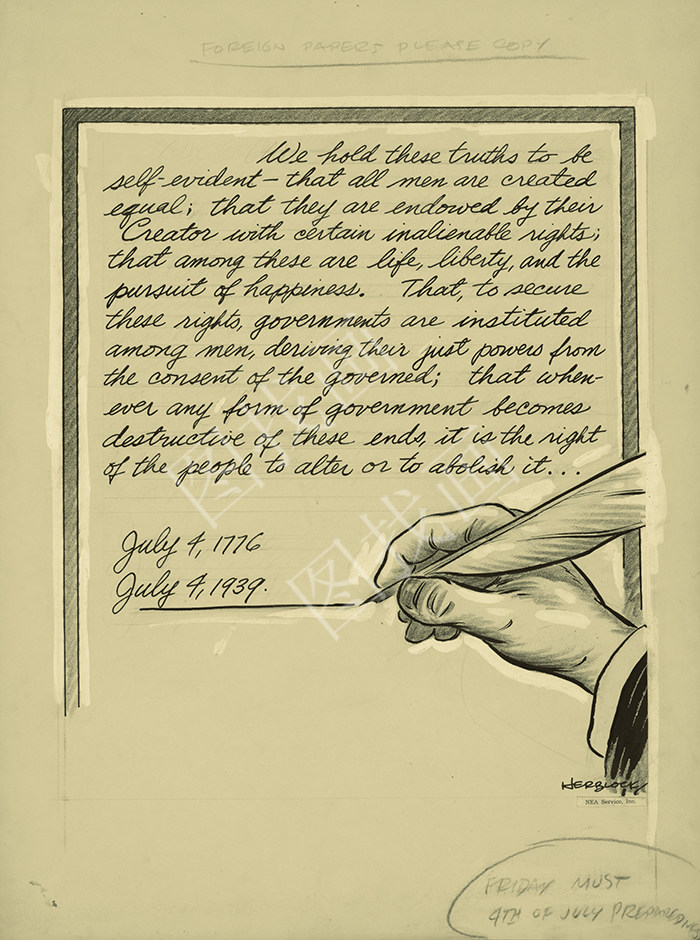 FOREIGN PAPERS PLEASE COPY
We hold these truths to be
self-evident — that all men are created
equal; that they are endowed by their
Creator with certain inalienable rights;
that among these are life, liberty, and the
pursuit of happiness. That, to secure
these rights, governments are instituted
among men, deriving their just powers from
the consent of the governed; that when-
ever any form of government becomes
destructive of these ends, it is the right
of the people to alter or to abolish it...
July 4, 1776
July 4, 1939.
HERBLOCK
NEA Service, Inc.
FRIDAY MUST
4TH OF JULY